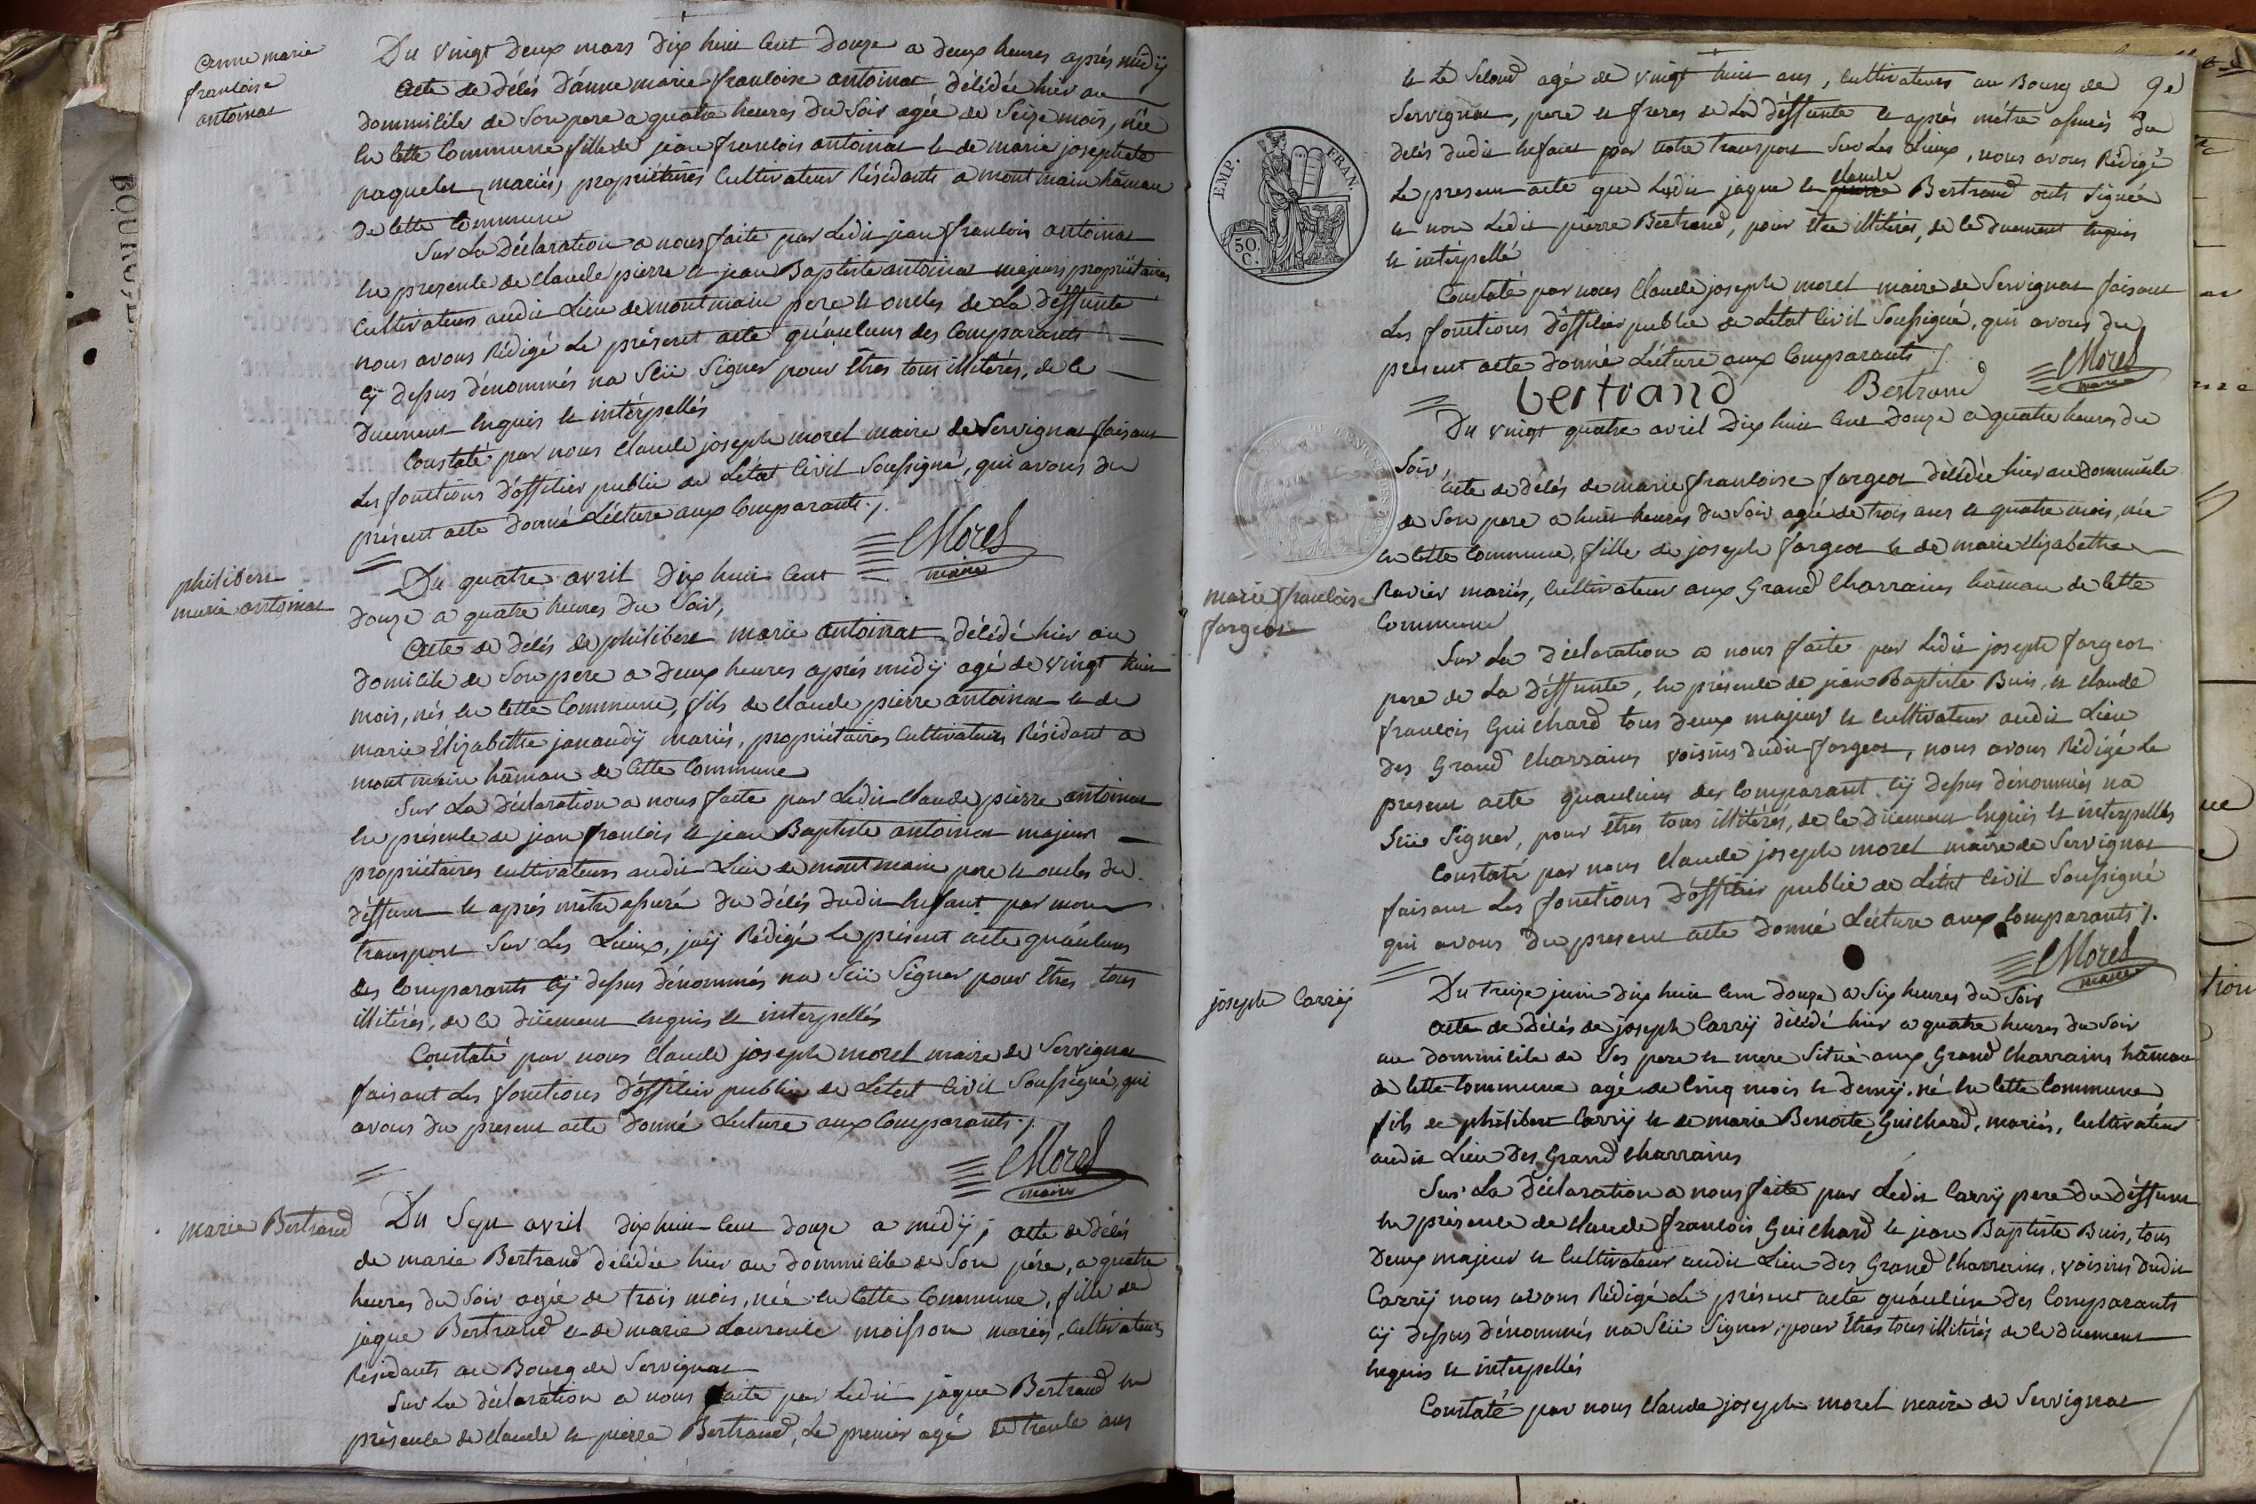 anne marie
françoise
antoinat
Du vingt deux mars dix huit cent douze a deux heures après midÿ
acte de décés d'anne marie françoise antoinat, décédée hier au
dommicile de son pere a quatre heures du soir agée de seize mois, née
en cette commune fille de jean françois antoinat et de marie josephete
paquelet, mariés, propriétaires cultivateur Résidants a montmain hâmau
de cette commune
Sur la Déclaration a nous faite par ledit jean françois antoinat
en presence de claude pierre et jean Baptiste antoinat majeurs propriétaires
cultivateurs audit Lieu de montmain pere et oncles de la déffunte
nous avons Rédigé le présent acte qu'auluns des comparants
cÿ dessus dénommés na sçü signer pour êtres tous illitérés, de ce
duement enquis et intérpellés
Constaté par nous claude joseph morel maire de Servignat faisant
les fonctions d'officier public de L'état civil soussigné, qui avons du
présent acte donné Lécture aux comparants ./.
Morel
maire
philibert
marie antoinat
Du quatre avril dix huit cent
douze a quatre heures du soir,
acte de décés de philibert marie antoinat, décédé hier au
domicile de son pere a deux heures après midÿ agé de vingt huit
mois, nés en cette commune, fils de claude pierre antoinat et de
marie Elizabethe janaudÿ mariés, propriétaires cultivateurs Résidant a
montmain hâmau de cette commune
Sur la déclaration a nous faite par ledit claude pierre antoinat
en présence de jean françois et jean Baptiste antoinat majeur
propriétaires cultivateurs audit Lieu de montmain pere et oncles du
déffunt et après mêtre assuré du décés dudit enfant par mon
transport sur les Lieux, jaÿ Rédigé le présent acte quauluns
des comparants cÿ dessus dénommés na sçü signer pour êtres tous
illitérés, de ce düement enquis et interpellés
Constaté par nous claude joseph morel maire de Servignat
faisant les fonctions d'officier public de L'etat civil soussigné, qui
avons du present acte donné Lecture aux comparants ./.
Morel
maire
marie Bertrand
Du Sept avril dix huit cent douze a midÿ, acte de décés
de marie Bertrand décédée hier au dommicile de son pére, a quatre
heures du soir agée de trois mois, née en cette commune, fille de
jaque Bertrand et de marie Laurence moisson mariés, cultivateurs
Résidants au Bourg de Servignat
Sur la déclaration a nous faite par ledit jaque Bertrand en
présence de claude et pierre Bertrand, le premier agé de trente ans
et le second agé de vingt huit ans, cultivateurs au Bourg de
Servignat, pere et freres de la déffunte et après métre assurés du
décés dudit enfant par notre transport sur les Lieux, nous avons Rédigé
le present acte que Ledit jaque et claude Bertrand onts signée
et non Ledit pierre Bertrand, pour être illitéré, de ce duement enquis
et intérpellé
Constaté par nous claude joseph morel maire de Servignat faisant
les fonctions d'officier public de L'état civil soussigné, qui avons du
présent acte donné Lécture aux comparants ./.
bertrand
Bertrand
Morel
maire
IMP. FRAN.
50 C.
Du vingt quatre avril dix huit cent douze a quatre heures du
soir,
marie françoise
fargeot
acte de décés de marie françoise fargeot décédée hier au dommicile
de son pere a huit heures du soir agée de trois ans et quatre mois, née
en cette commune, fille de joseph fargeot et de marie Elizabethe
Ravier mariés, cultivateur aux Grand charrains hâmau de cette
commune
Sur la Déclaration a nous faite par ledit joseph fargeot
pere de la déffunte, en présence de jean Baptiste Buis, et claude
françois Guichard tous deux majeur et cultivateur audit Lieu
des Grand charrains voisins dudit fargeot, nous avons Rédigé le
present acte quauluns des comparant cÿ dessus dénommés na
sçüe signer, pour êtres tous illitérés, de ce düement enquis et interpellés
Constaté par nous claude joseph morel maire de Servignat
faisant les fonctions d'officier public de L'état civil soussigné
qui avons du present acte donné Lécture aux comparants ./.
Morel
maire
joseph Carrÿ
Du treize juin dix huit cent douze a six heures du soir
acte de décés de joseph Carrÿ décédé hier a quatre heures du soir
au dommicile de ses pere et mere situé aux Grand charrains hâmau
de cette commune agé de cinq mois et demÿ, né en cette commune
fils de philibert Carrÿ et de marie Benoite Guichard, mariés, cultivateur
audit Lieu des Grand charrains
Sur la Déclaration a nous faite par ledit Carrÿ pere du déffunt
en présence de claude françois Guichard et jean Baptiste Buis, tous
deux majeur et cultivateur audit Lieu des Grand charrains, voisins dudit
Carrÿ nous avons Rédigé le présent acte qu'auluns des comparants
cÿ dessus dénommés na sçü signer, pour êtres tous illitérés de ce duement
enquis et intérpellés
Constaté par nous claude joseph morel maire de Servignat